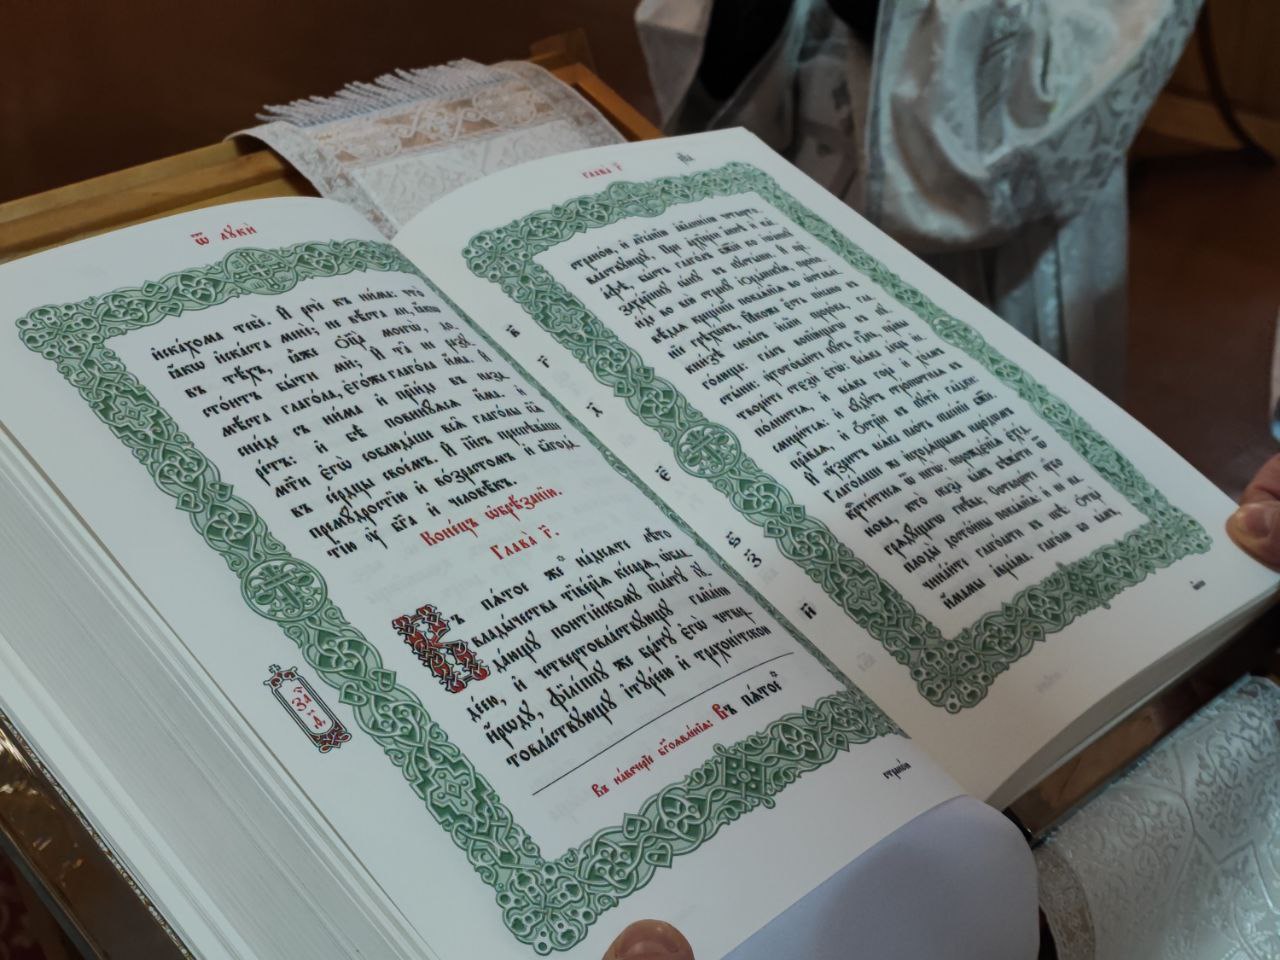 Ѿ ЛꙋкѢ̀
и҆ска́хома тебѐ. И҆ речѐ къ ни́ма: что̀
ꙗ҆́кѡ и҆ска́ста менѐ; не вѣ́ста ли, ꙗ҆́кѡ
въ тѣ́хъ, ꙗ҆̀же ѻ҆ц҃а̀ моегѡ̀,
досто́итъ бы́ти мѝ; И҆ та̑ не разꙋ-
мѣ́ста глаго́ла, є҆го́же глаго́ла и҆́ма. И҆
сни́де съ ни́ма и҆ прїи́де въ наза-
ре́тъ: и҆ бѣ̀ повинꙋ́ѧсѧ и҆́ма. и҆
ма́ти є҆гѡ̀ соблюда́ше всѧ̑ глаго́лы сїѧ̑
въ се́рдцы свое́мъ. И҆ і҆и҃съ преспѣва́ше
премꙋ́дростїю и҆ во́зрастомъ и҆ благода́-
тїю ᲂу҆ бг҃а и҆ человѣ̑къ.
Коне́цъ ѡ҆брѣ́занїю.
Глава̀ г҃.
Въ пѧ́тое же на́десѧте лѣ́то
влады́чества тїве́рїа ке́сарѧ, ѡ҆блада́-
ющꙋ понті́йскомꙋ пїла́тꙋ і҆ꙋ-
де́ею, и҆ четвертовла́ствꙋющꙋ галїле́ею
и҆́рѡдꙋ, фїлі́ппꙋ же бра́тꙋ є҆гѡ̀ четвер-
товла́ствꙋющꙋ і҆тꙋре́ею и҆ трахоні́тскою
Въ наве́черїи бг҃оѧвле́нїѧ: Въ пѧ́тое
страно́ю
За҄ ч҃
Глава̀ г҃
страно́ю, и҆ лѷса́нїю а҆вїлині́ею четверто-
вла́ствꙋющꙋ, При а҆рхїере́и а҆́ннѣ и҆ каїа́-
фѣ, бы́сть глаго́лъ бж҃їй ко і҆ѡа́ннꙋ
заха́рїинꙋ сы́нꙋ въ пꙋсты́ни. И҆
прїи́де во всю̀ странꙋ̀ і҆ѻрда́нскꙋю, пропо-
вѣ́даѧ кр҃ще́нїе покаѧ́нїѧ во ѡ҆ставле́-
нїе грѣхѡ́въ, Ꙗ҆́коже є҆́сть пи́сано въ
кни́зѣ слове́съ и҆са́їи прⷪ҇ро́ка, глаго́-
люща: гла́съ вопїю́щагѡ въ пꙋ-
сты́ни: ᲂу҆гото́вайте пꙋ́ть гдⷭ҇ень, пра̑вы
твори́те стєзѝ є҆гѡ̀: Всѧ́ка де́брь и҆с-
по́лнитсѧ, и҆ всѧ́ка гора̀ и҆ хо́лмъ
смири́тсѧ: и҆ бꙋ́дꙋтъ стропѡ́тнаѧ въ
пра̑ваѧ, и҆ ѻ҆́стрїи въ пꙋти̑ гла́дки:
И҆ ᲂу҆́зритъ всѧ́ка пло́ть спасе́нїе бж҃їе.
Глаго́лаше же и҆сходѧ́щымъ наро́дѡмъ
крⷭ҇ти́тисѧ ѿ негѡ̀: порождє́нїѧ є҆хі́д-
нѡва, кто̀ сказа̀ ва́мъ бѣжа́ти ѿ
грѧдꙋ́щагѡ гнѣ́ва; Сотвори́те ᲂу҆̀бо
плоды̀ достѡ́йны покаѧ́нїѧ: и҆ не на-
чина́йте глаго́лати въ себѣ̀: ѻ҆тца̀
и҆́мамы а҆враа́ма. глаго́лю бо ва́мъ,
в҃
г҃
д҃
є҃
ѕ҃
з҃
и҃